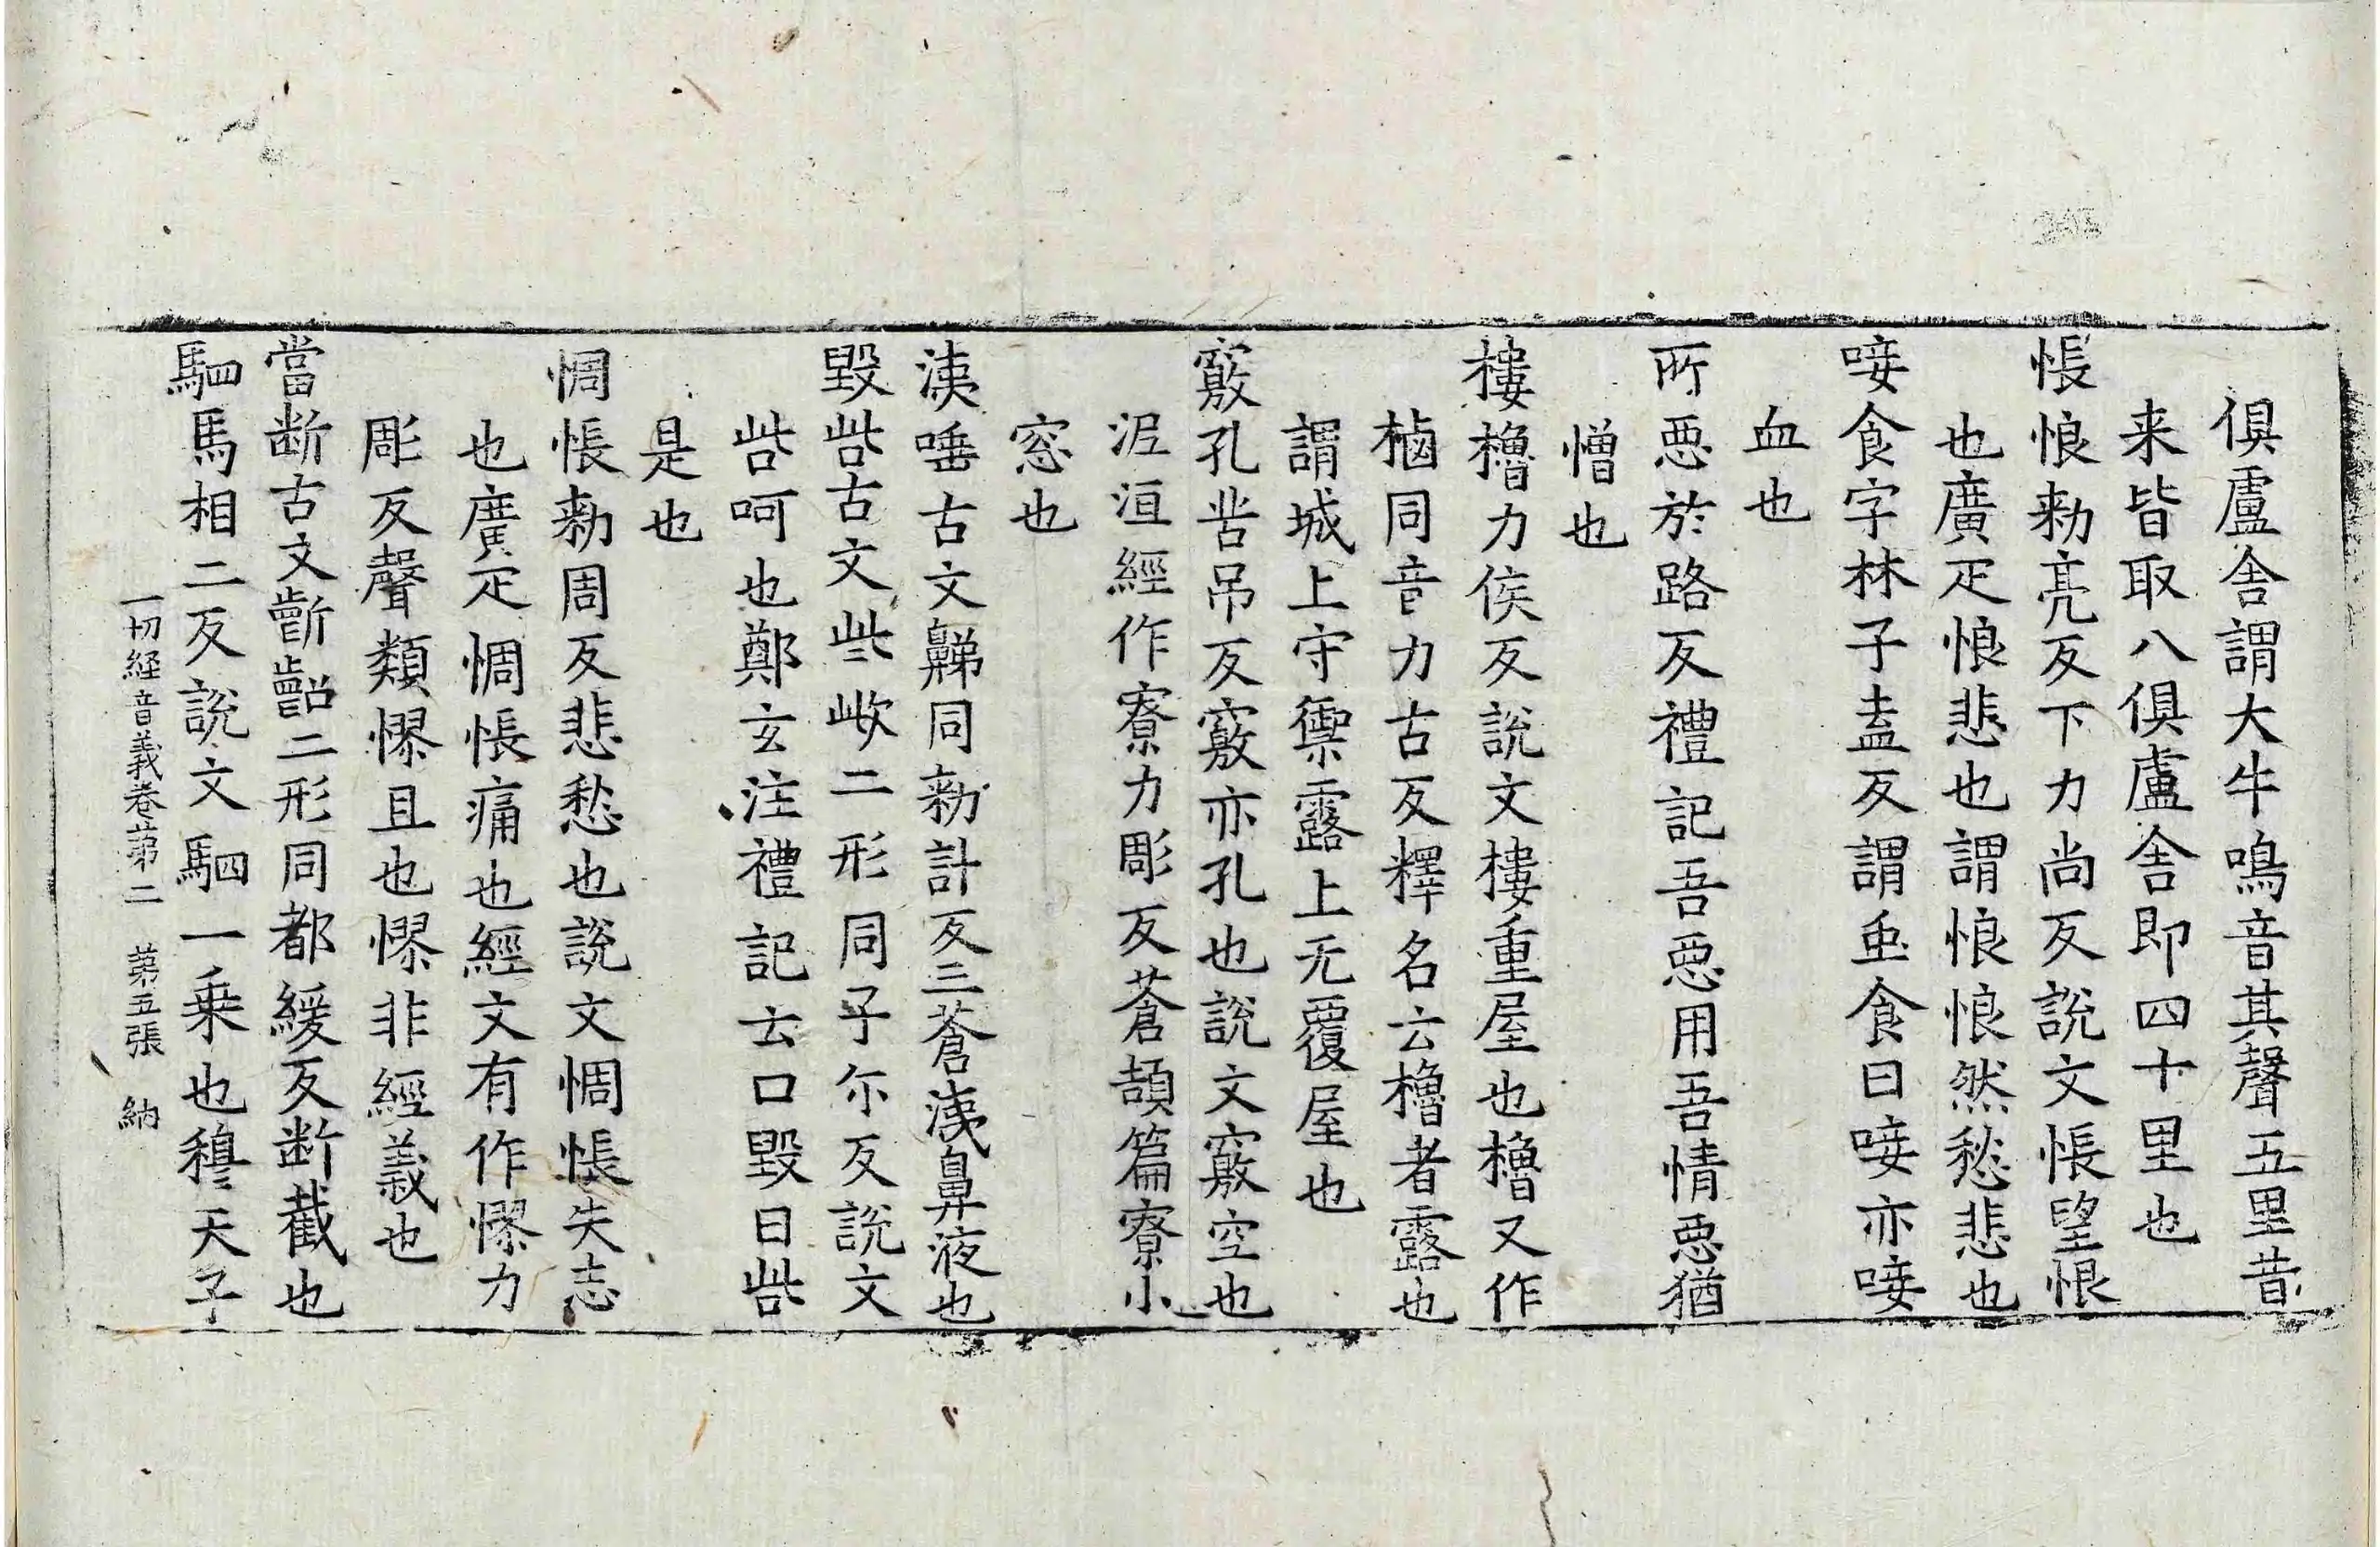 俱盧舍謂大牛鳴音其聲五里昔
来皆取八俱盧舍即四十里也
悵悢勑亮反下力尚反說文悵望恨
也廣疋悢悲也謂悢悢然愁悲也
唼食字林子盍反謂䖝食曰唼亦唼
血也
所惡於路反禮記吾惡用吾情惡猶
憎也
樓櫓力侯反說文樓重屋也櫓又作
樐同音力古反釋名云櫓者露也
謂城上守禦露上无覆屋也
竅孔苦吊反竅亦孔也說文竅空也
泥洹經作寮力彫反蒼頡篇寮小
窓也
洟唾古文𪖦同勑計反三蒼洟鼻液也
毀呰古文些㱔二形同子尒反說文
呰呵也鄭玄注禮記云口毀曰呰
是也
惆悵勑周反悲愁也說文惆悵失志
也廣疋惆悵痛也經文有作憀力
彫反聲類憀且也憀非經義也
當断古文㫁𠸿二形同都緩反断截也
駟馬相二反說文駟一乗也穆天子
一切経音義卷苐二　苐五張　納